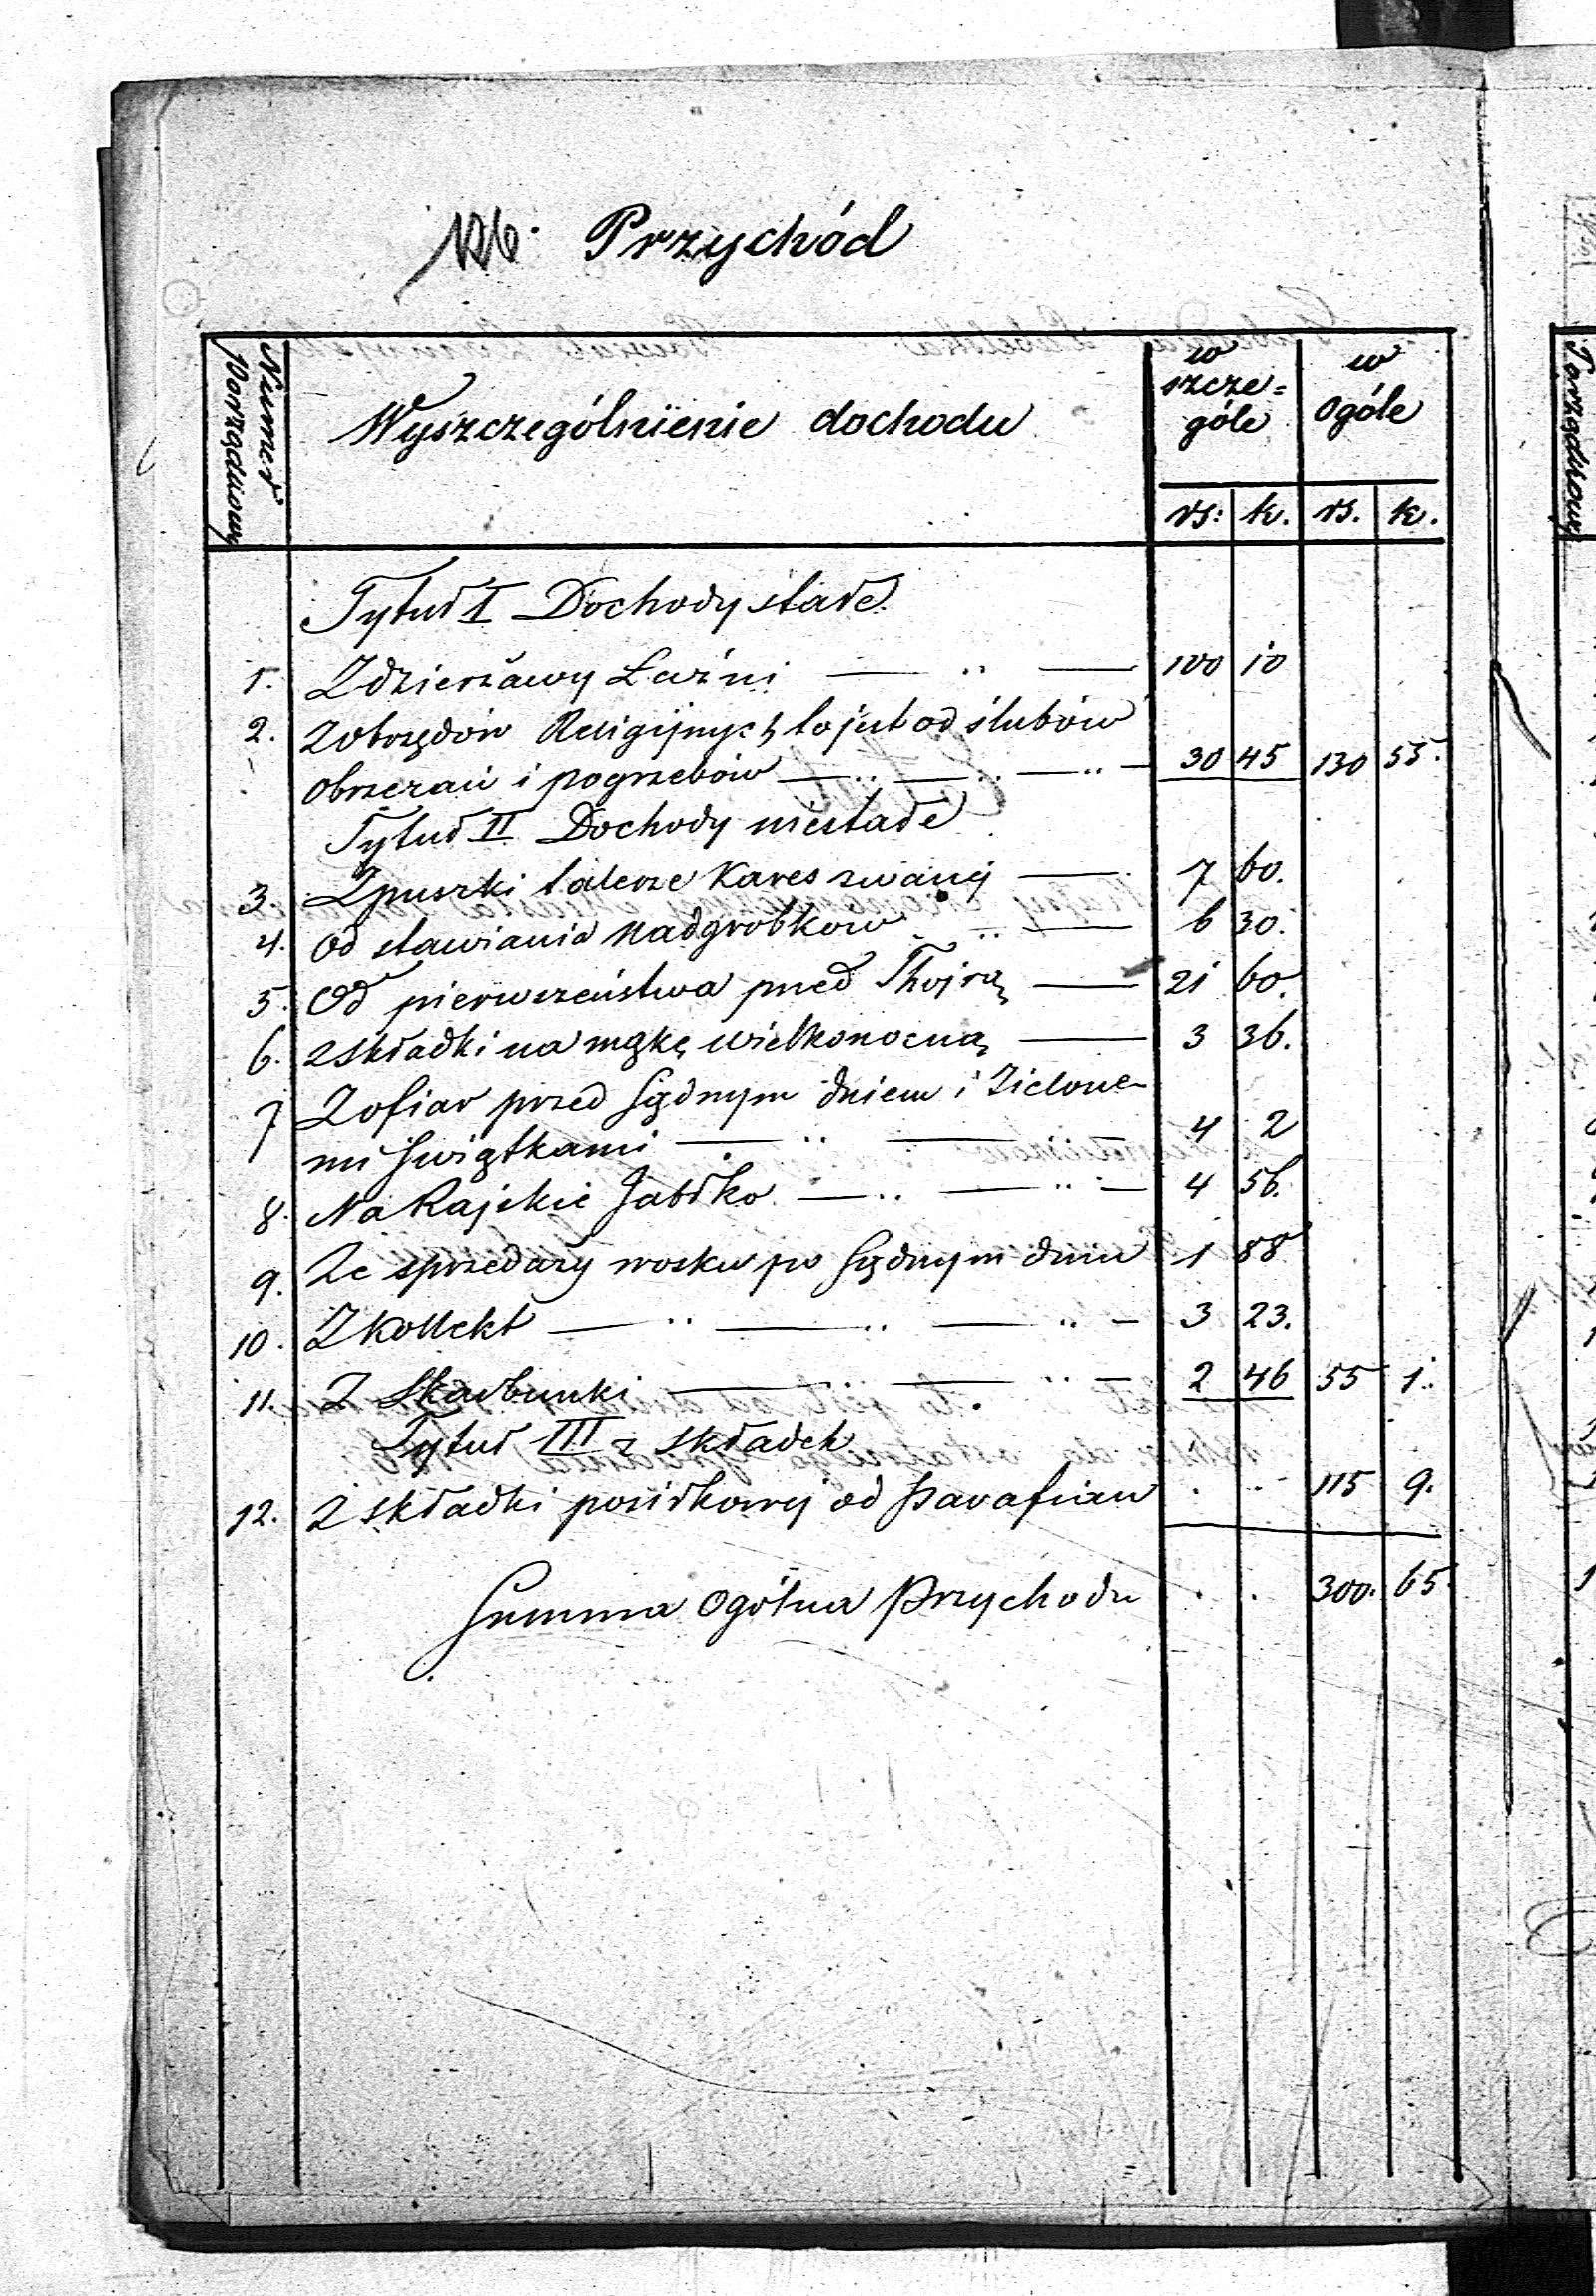 126. Przychód
Numer Porządkowy
Wyszczególnienie dochodu
w szcze=
góle
w
ogóle
rs: k. rs. k.
Tytuł I Dochody stałe
1. Z dzierżawy Łaźni 100 10
2. Z obrzędów Religijnych to jest od ślubów
obrzezań i pogrzebów 30 45 130 55.
Tytuł II Dochody niestałe
3. Z puszki talerze Kares zwanej 7 60.
4. Od stawiania Nadgrobków 6 30.
5. Od pierwszeństwa przed Thojrą 21 60.
6. Z składki na mąkę wielkonocną 3 36.
7 Z ofiar przed Sądnym dniem i Zielone-
mi Swiątkami 4 2
8. Na Rajskie Jabłko 4 56.
9. Ze sprzedaży wosku po Sądnym dniu 1 88
10. Z Kollekt 3 23.
11. Z Skarbunki 2 46 55 1.
Tytuł III z składek
12. Z składki posiłkowej od Parafian 115 9.
Summa ogólna Przychodu 300. 65.
Porządkowy